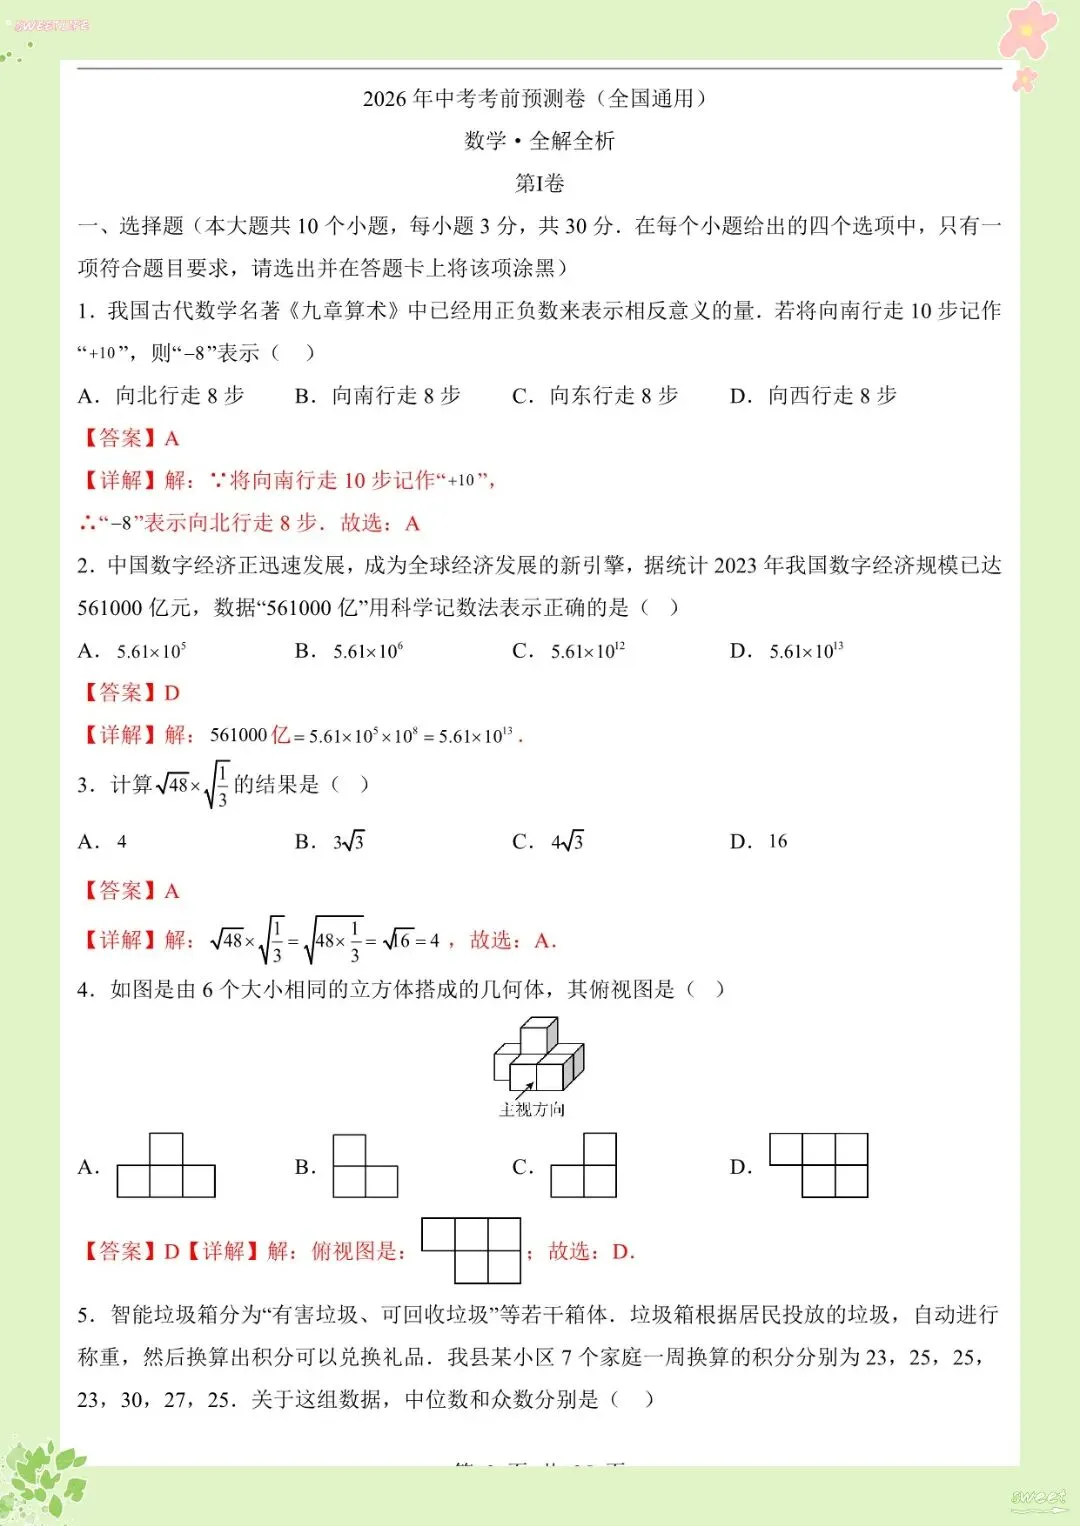 SWEETLIFE
2026 年中考考前预测卷（全国通用）
数学·全解全析
第I卷
一、选择题（本大题共 10 个小题，每小题 3 分，共 30 分．在每个小题给出的四个选项中，只有一
项符合题目要求，请选出并在答题卡上将该项涂黑）
1．我国古代数学名著《九章算术》中已经用正负数来表示相反意义的量．若将向南行走 10 步记作
“+10”，则“−8”表示（　）
A．向北行走 8 步 B．向南行走 8 步 C．向东行走 8 步 D．向西行走 8 步
【答案】A
【详解】解：∵将向南行走 10 步记作“+10”，
∴“−8”表示向北行走 8 步．故选：A
2．中国数字经济正迅速发展，成为全球经济发展的新引擎，据统计 2023 年我国数字经济规模已达
561000 亿元，数据“561000 亿”用科学记数法表示正确的是（　）
A．5.61×10⁵ B．5.61×10⁶ C．5.61×10¹² D．5.61×10¹³
【答案】D
【详解】解：561000亿=5.61×10⁵×10⁸=5.61×10¹³．
3．计算√48×√(1/3)的结果是（　）
A．4 B．3√3 C．4√3 D．16
【答案】A
【详解】解：√48×√(1/3)=√(48×1/3)=√16=4，故选：A．
4．如图是由 6 个大小相同的立方体搭成的几何体，其俯视图是（　）
主视方向
A． B． C． D．
【答案】D【详解】解：俯视图是：；故选：D．
5．智能垃圾箱分为“有害垃圾、可回收垃圾”等若干箱体．垃圾箱根据居民投放的垃圾，自动进行
称重，然后换算出积分可以兑换礼品．我县某小区 7 个家庭一周换算的积分分别为 23，25，25，
23，30，27，25．关于这组数据，中位数和众数分别是（　）
sweet